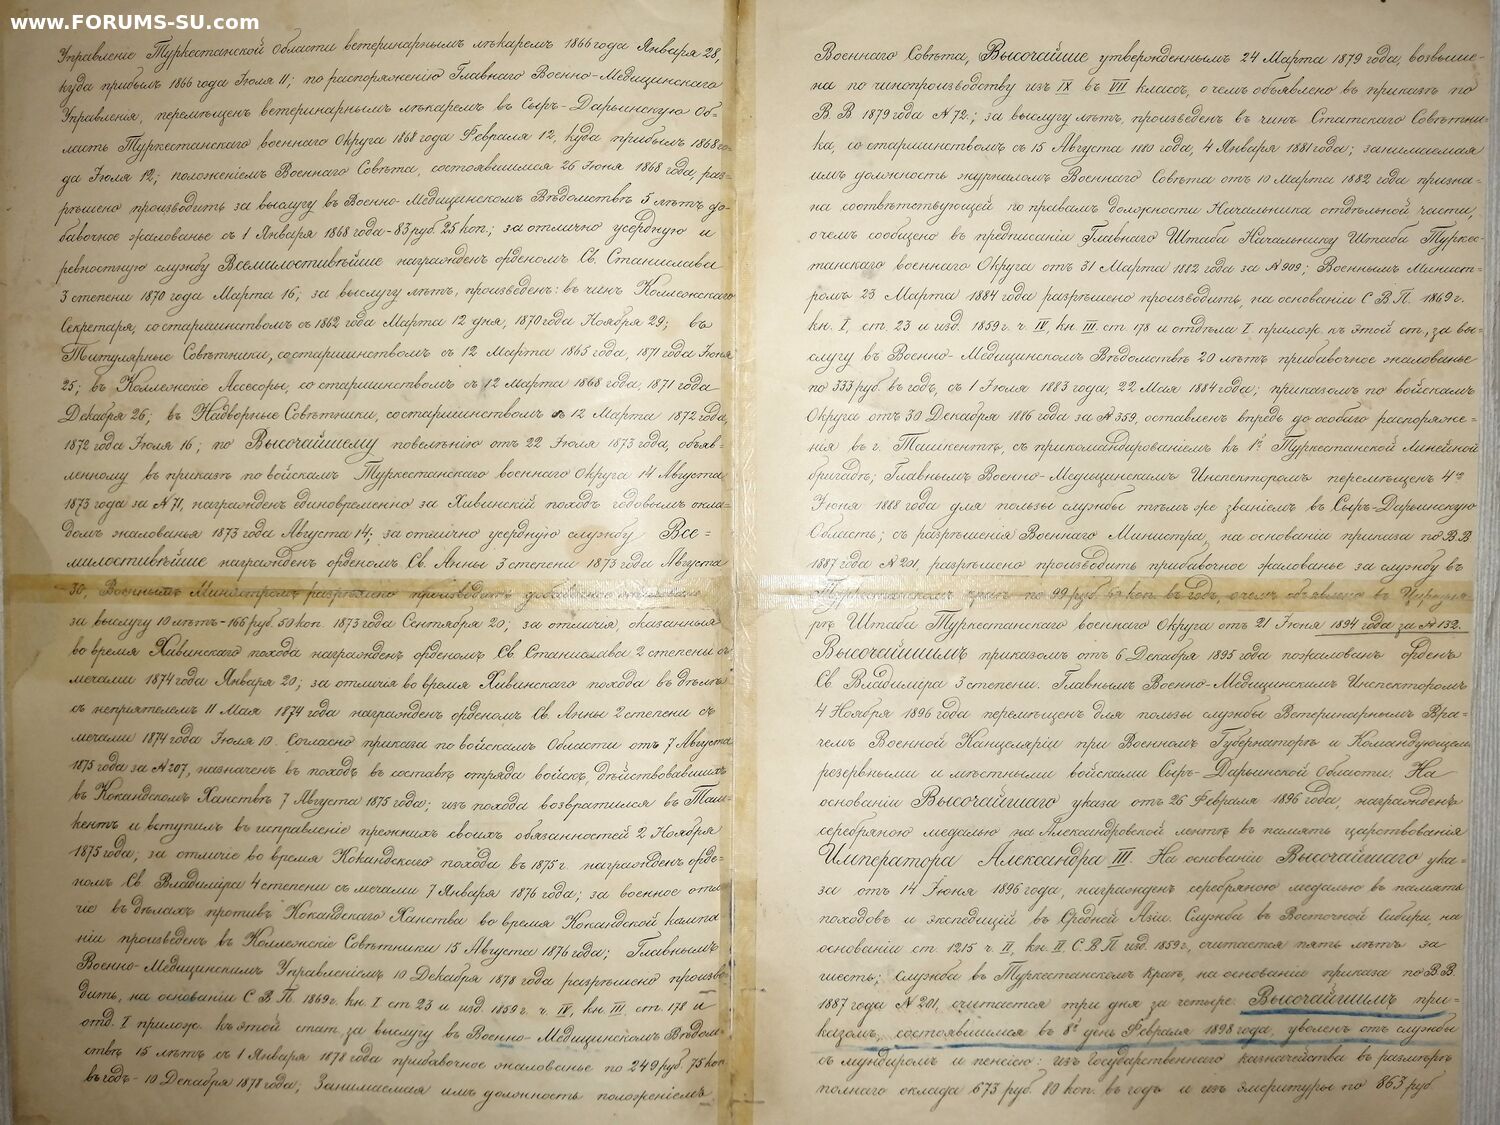 www.FORUMS-SU.com
Управленіе Туркестанской Области ветеринарнымъ лѣкаремъ 1866 года Января 28,
куда прибылъ 1866 года Іюля 11; по распоряженію Главнаго Военно-Медицинскаго
Управленія, перемѣщенъ ветеринарнымъ лѣкаремъ въ Сыръ-Дарьинскую Об=
ласть Туркестанскаго военнаго Округа 1868 года Февраля 12, куда прибылъ 1868 го=
да Іюля 12; положеніемъ Военнаго Совѣта, состоявшимся 26 Іюня 1868 года, раз=
рѣшено производить за выслугу въ Военно-Медицинскомъ Вѣдомствѣ 5 лѣтъ до=
бавочное жалованье съ 1 Января 1868 года - 83 руб. 25 коп.; за отлично усердную и
ревностную службу Всемилостивѣйше награжденъ орденомъ Св. Станислава
3 степени 1870 года Марта 16; за выслугу лѣтъ, произведенъ: въ чинъ Коллежскаго
Секретаря, со старшинствомъ съ 1862 года Марта 12 дня, 1870 года Ноября 29; въ
Титулярные Совѣтники, со старшинствомъ съ 12 Марта 1865 года, 1871 года Іюня
25; въ Коллежскіе Ассесоры, со старшинствомъ съ 12 Марта 1868 года, 1871 года
Декабря 26; въ Надворные Совѣтники, со старшинствомъ съ 12 Марта 1872 года,
1872 года Іюля 16; по Высочайшему повелѣнію отъ 22 Іюля 1873 года, объяв=
ленному въ приказѣ по войскамъ Туркестанскаго военнаго Округа 14 Августа
1873 года за № 71, награжденъ единовременно за Хивинскій походъ годовымъ окла=
домъ жалованья 1873 года Августа 14; за отлично усердную службу Все=
милостивѣйше награжденъ орденомъ Св. Анны 3 степени 1873 года Августа
30; Военнымъ Министромъ разрѣшено производить добавочное жалованье
за выслугу 10 лѣтъ - 166 руб. 50 коп. 1873 года Сентября 20; за отличія, оказанныя
во время Хивинскаго похода награжденъ орденомъ Св. Станислава 2 степени съ
мечами 1874 года Января 20; за отличія во время Хивинскаго похода въ дѣлѣ
съ непріятелемъ 11 Мая 1874 года награжденъ орденомъ Св. Анны 2 степени съ
мечами 1874 года Іюля 10. Согласно приказа по войскамъ Области отъ 7 Августа
1875 года за № 207, назначенъ въ походъ въ составѣ отряда войскъ, дѣйствовавшихъ
въ Кокандскомъ Ханствѣ 7 Августа 1875 года; изъ похода возвратился въ Таш=
кентъ и вступилъ въ исправленіе прежнихъ своихъ обязанностей 2 Ноября
1875 года; за отличіе во время Кокандскаго похода въ 1875 г. награжденъ орде=
номъ Св. Владиміра 4 степени съ мечами 7 Января 1876 года; за военное отли
чіе въ дѣлахъ противъ Кокандскаго Ханства во время Кокандской кампа
ніи произведенъ въ Коллежскіе Совѣтники 15 Августа 1876 года; Главнымъ
Военно-Медицинскимъ Управленіемъ 10 Декабря 1878 года разрѣшено произво=
дить, на основаніи С. В. П. 1869 г. кн. I ст. 23 и изд. 1859 г. ч. IV, кн. III, ст. 178 и
отд. I прилож. къ этой стат. за выслугу въ Военно-Медицинскомъ Вѣдом=
ствѣ 15 лѣтъ съ 1 Января 1878 года прибавочное жалованье по 249 руб. 75 коп.
въ годъ - 10 Декабря 1878 года; Занимаемая имъ должность положеніемъ
Военнаго Совѣта, Высочайше утвержденнымъ 24 Марта 1879 года, возвыше=
на по чинопроизводству изъ IX въ VIII классъ, о чемъ объявлено въ приказѣ по
В. В. 1879 года № 72; за выслугу лѣтъ, произведенъ въ чинъ Статскаго Совѣтни=
ка, со старшинствомъ съ 15 Августа 1880 года, 4 Января 1881 года; занимаемая
имъ должность журналомъ Военнаго Совѣта отъ 10 Марта 1882 года призна=
на соотвѣтствующей по правамъ должности Начальника отдѣльной части,
о чемъ сообщено въ предписаніи Главнаго Штаба Начальнику Штаба Туркес=
танскаго военнаго Округа отъ 31 Марта 1882 года за № 909; Военнымъ Минист=
ромъ 23 Марта 1884 года разрѣшено производить, на основаніи С. В. П. 1869 г.
кн. I, ст. 23 и изд. 1859 г. ч. IV, кн. III. ст 178 и отдѣла I прилож. къ этой ст., за вы=
слугу въ Военно-Медицинскомъ Вѣдомствѣ 20 лѣтъ прибавочное жалованье
по 333 руб. въ годъ, съ 1 Іюля 1883 года, 22 Мая 1884 года; приказомъ по войскамъ
Округа отъ 30 Декабря 1886 года за № 359, оставленъ впредь до особаго распоряже=
нія въ г. Ташкентѣ, съ прикомандированіемъ къ 1й Туркестанской Линейной
бригадѣ; Главнымъ Военно-Медицинскимъ Инспекторомъ перемѣщенъ 4го
Іюня 1888 года для пользы службы тѣмъ же званіемъ въ Сыръ-Дарьинскую
Область; съ разрѣшенія Военнаго Министра, на основаніи приказа по В. В.
1887 года № 201, разрѣшено производить прибавочное жалованье за службу въ
Туркестанскомъ краѣ по 99 руб. коп. въ годъ, о чемъ объявлено въ Циркуля=
рѣ Штаба Туркестанскаго военнаго Округа отъ 21 Іюня 1894 года за № 132.
Высочайшимъ приказомъ отъ 6 Декабря 1895 года пожалованъ орденъ
Св. Владиміра 3 степени. Главнымъ Военно-Медицинскимъ Инспекторомъ
4 Ноября 1896 года перемѣщенъ для пользы службы Ветеринарнымъ Вра=
чемъ Военной Канцеляріи при Военномъ Губернаторѣ и Командующемъ
резервными и мѣстными войсками Сыръ-Дарьинской Области. На
основаніи Высочайшаго указа отъ 26 Февраля 1896 года, награжденъ
серебряною медалью на Александровской лентѣ въ память царствованія
Императора Александра III. На основаніи Высочайшаго ука=
за отъ 14 Іюня 1896 года, награжденъ серебряною медалью въ память
походовъ и экспедицій въ Средней Азіи. Служба въ Восточной Сибири, на
основаніи ст. 1215 ч. II, кн. II. С. В. П. изд. 1859 г., считается пять лѣтъ за
шесть; служба въ Туркестанскомъ краѣ, на основаніи приказа по В. В.
1887 года № 201, считается три дня за четыре. Высочайшимъ при=
казомъ, состоявшимся въ 8й день Февраля 1898 года, уволенъ отъ службы
съ мундиромъ и пенсіею: изъ Государственнаго казначейства въ размѣрѣ
полнаго оклада 673 руб. 80 коп. въ годъ и изъ эмеритуры по 863 руб.